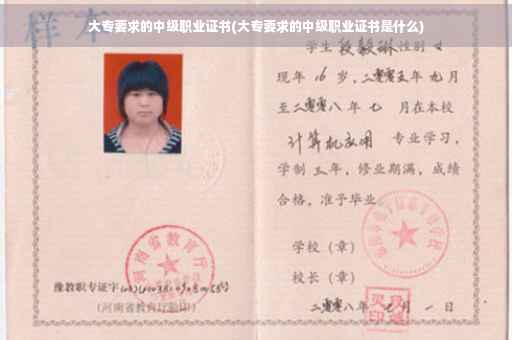 大专要求的中级职业证书(大专要求的中级职业证书是什么)
样本
学生段毅琳性别女
现年16岁，二零零五年九月
至二零零八年七月在本校
计算机应用专业学习，
学制三年，修业期满，成绩
合格，准予毕业。
学校（章）
校长（章）
二零零八年七月一日
河南省教育厅
豫教职专证字
(河南省教育厅验印)